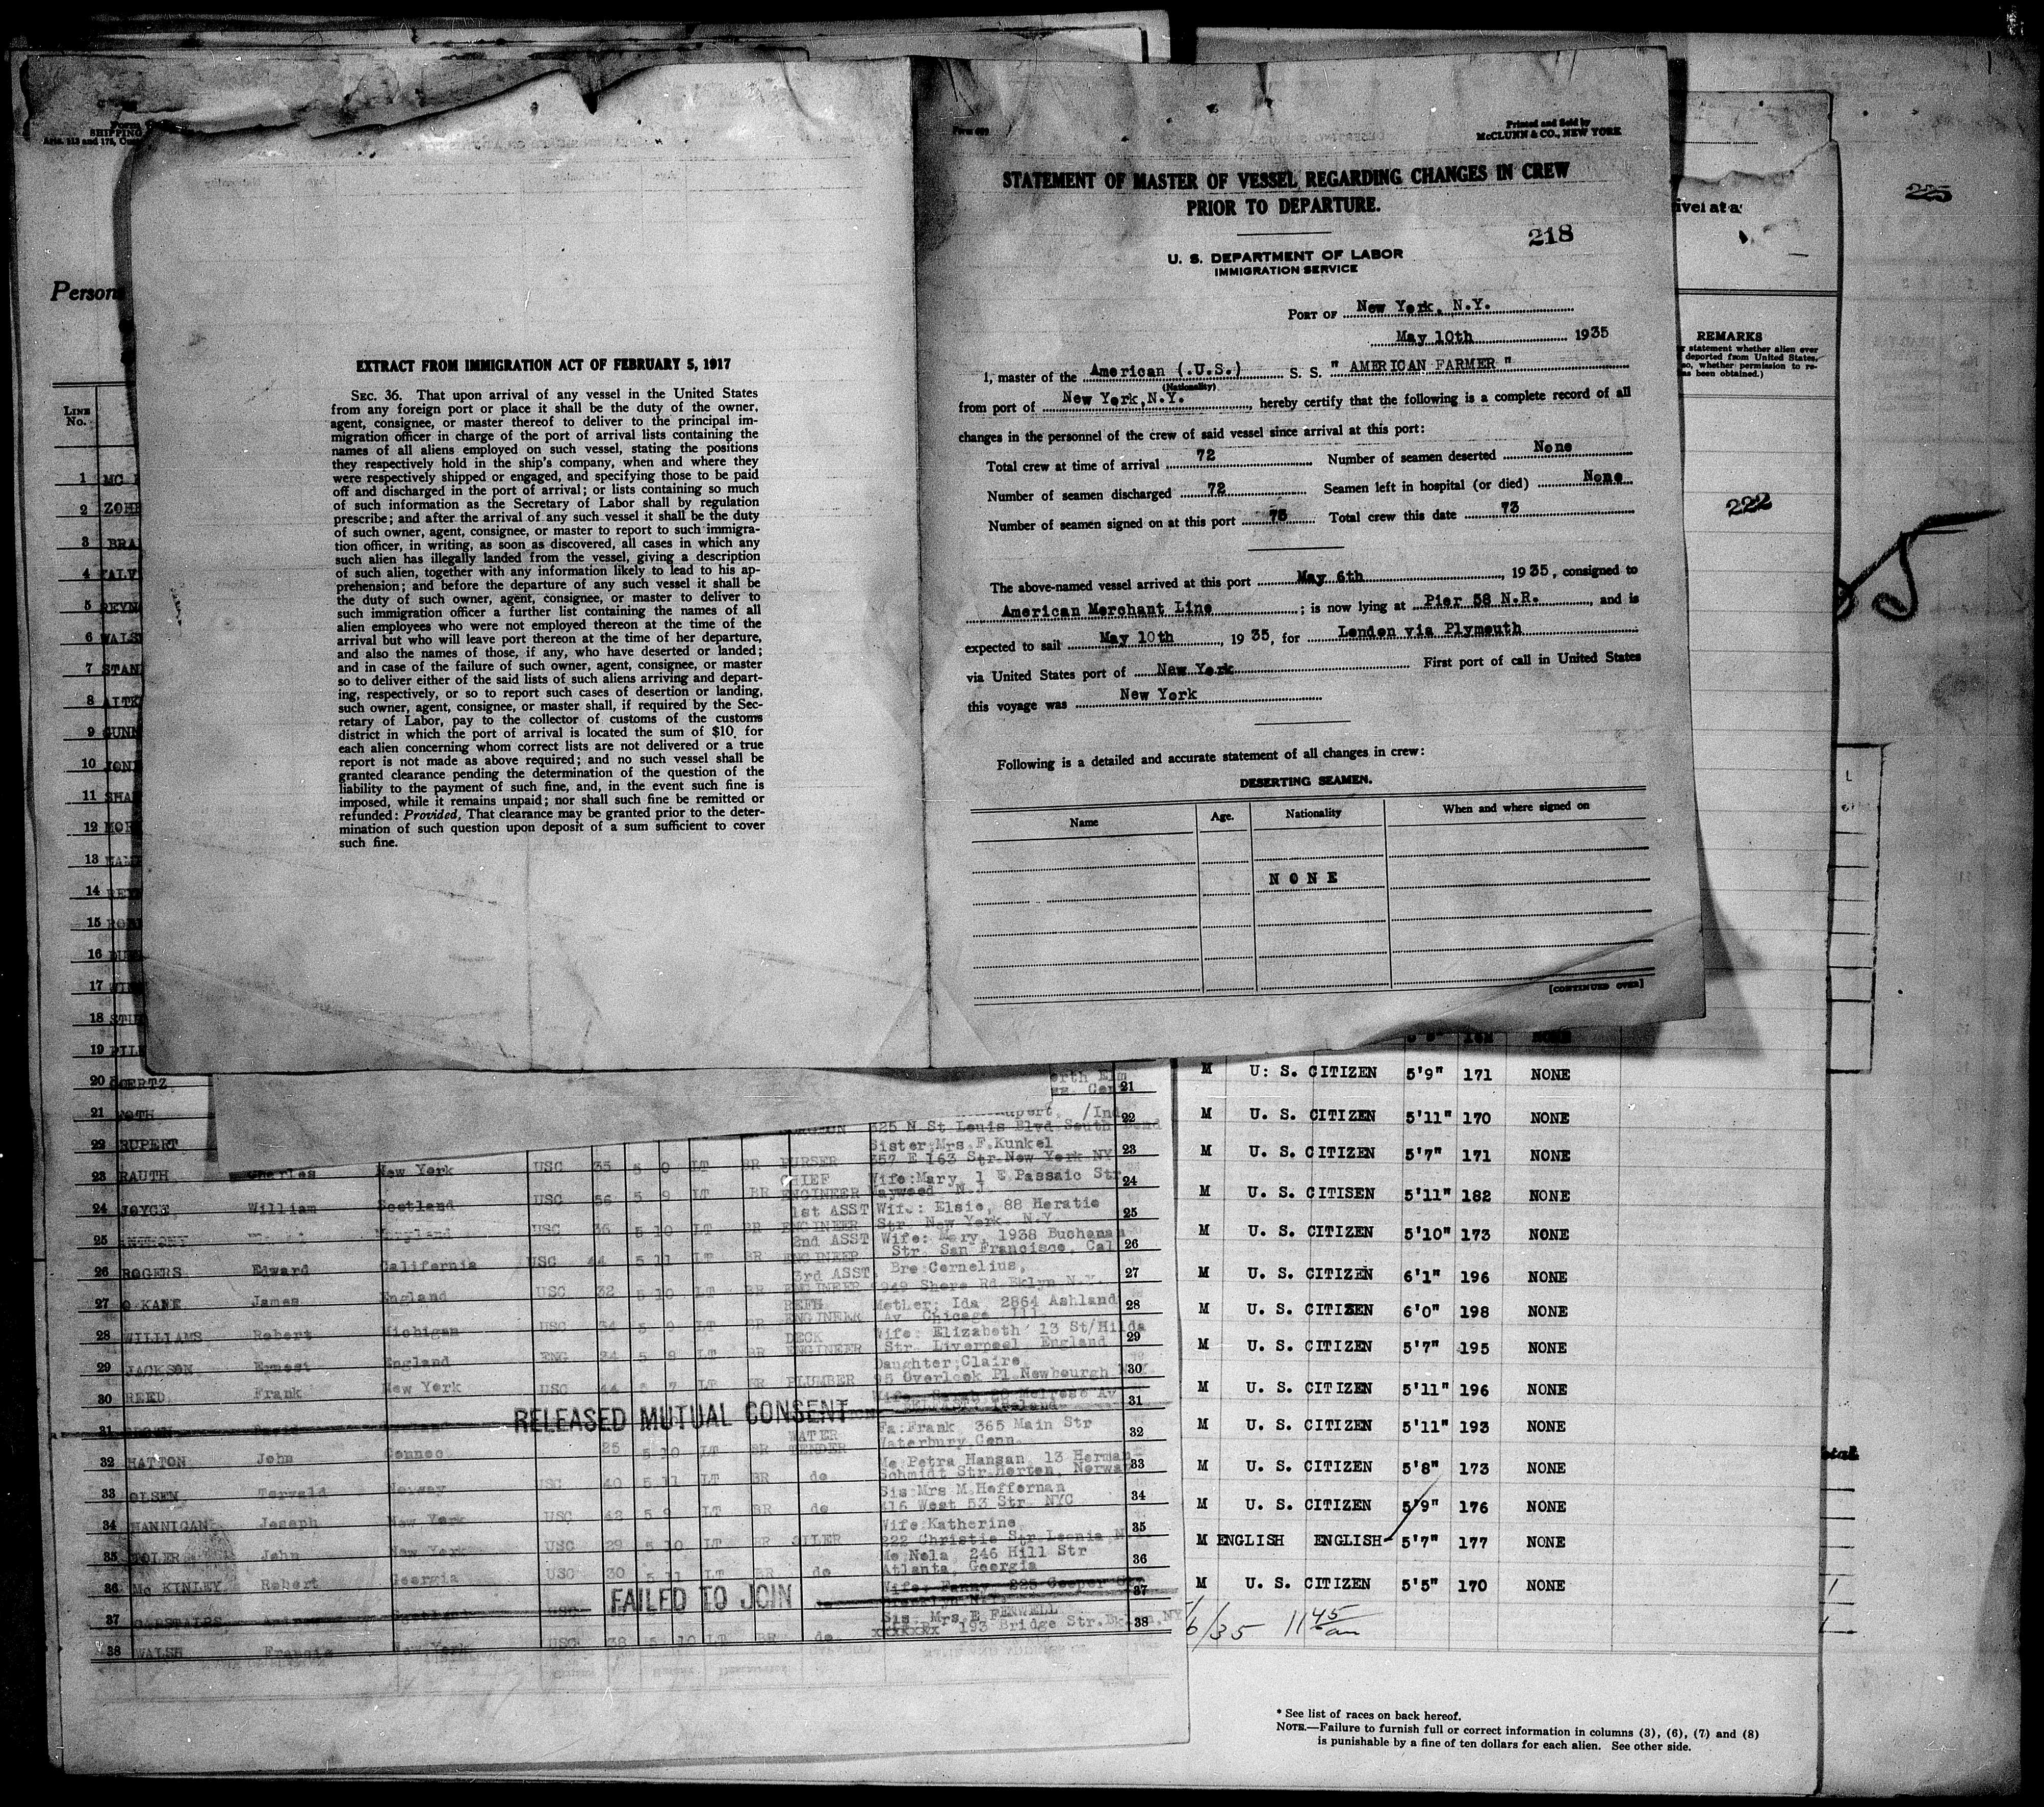 EXTRACT FROM IMMIGRATION ACT OF FEBRUARY 5, 1917
SEC. 36. That upon arrival of any vessel in the United States
from any foreign port or place it shall be the duty of the owner,
agent, consignee, or master thereof to deliver to the principal im-
migration officer in charge of the port of arrival lists containing the
names of all aliens employed on such vessel, stating the positions
they respectively hold in the ship's company, when and where they
were respectively shipped or engaged, and specifying those to be paid
off and discharged in the port of arrival; or lists containing so much
of such information as the Secretary of Labor shall by regulation
prescribe; and after the arrival of any such vessel it shall be the duty
of such owner, agent, consignee, or master to report to such immigra-
tion officer, in writing, as soon as discovered, all cases in which any
such alien has illegally landed from the vessel, giving a description
of such alien, together with any information likely to lead to his ap-
prehension; and before the departure of any such vessel it shall be
the duty of such owner, agent, consignee, or master to deliver to
such immigration officer a further list containing the names of all
alien employees who were not employed thereon at the time of the
arrival but who will leave port thereon at the time of her departure,
and also the names of those, if any, who have deserted or landed;
and in case of the failure of such owner, agent, consignee, or master
so to deliver either of the said lists of such aliens arriving and depart-
ing, respectively, or so to report such cases of desertion or landing,
such owner, agent, consignee, or master shall, if required by the Sec-
retary of Labor, pay to the collector of customs of the customs
district in which the port of arrival is located the sum of $10, for
each alien concerning whom correct lists are not delivered or a true
report is not made as above required; and no such vessel shall be
granted clearance pending the determination of the question of the
liability to the payment of such fine, and, in the event such fine is
imposed, while it remains unpaid; nor shall such fine be remitted or
refunded: Provided, That clearance may be granted prior to the deter-
mination of such question upon deposit of a sum sufficient to cover
such fine.
Printed and Sold by
McCLUNN & CO., NEW YORK
STATEMENT OF MASTER OF VESSEL REGARDING CHANGES IN CREW
PRIOR TO DEPARTURE.
218
U. S. DEPARTMENT OF LABOR
IMMIGRATION SERVICE
PORT OF New York, N.Y.
May 10th 1935
I, master of the American (.U.S.) S. S. " AMERICAN FARMER "
(Nationality)
from port of New York,N.Y. , hereby certify that the following is a complete record of all
changes in the personnel of the crew of said vessel since arrival at this port:
Total crew at time of arrival 72 Number of seamen deserted None
Number of seamen discharged 72 Seamen left in hospital (or died) None
Number of seamen signed on at this port Total crew this date 73
The above-named vessel arrived at this port May 6th, 1935, consigned to
American Merchant Line ; is now lying at Pier 58 N.R. , and is
expected to sail May 10th , 1935, for London via Plymouth
via United States port of New York First port of call in United States
this voyage was New York
Following is a detailed and accurate statement of all changes in crew:
DESERTING SEAMEN.
Name Age. Nationality When and where signed on
NONE
[CONTINUED OVER]
225
222
Person
LINE No.
REMARKS
statement whether alien ever
deported from United States,
so, whether permission to re-
as been obtained.)
1
2
3 BRA
4
5 REYN
6 WALS
7 STAN
8 AITK
9 GUNN
10 JON
11 SHA
12 MOR
13
14
15
16
17
18
19
20 GOERTZ
21
22 RUPERT
325 N St Louis Blvd South Bend
Sister:Mrs F.Kunkel
23 RAUTH Charles New York USC 35 5 0 LT BR PURSER 357 E 163 Str New York NY
CHIEF Wife:Mary 1 E Passaic Str
24 JOYCE William Scotland USC 56 5 9 LT BR ENGINEER Maywood N.J.
1st ASST Wife: Elsie, 88 Horatio
25 ANTHONY USC 36 5 10 LT BR ENGINEER Str. New York, N.Y.
2nd ASST Wife: Mary, 1938 Buchanan
26 ROGERS Edward California USC 44 5 11 LT BR ENGINEER Str. San Francisco, Cal
3rd ASST Bro:Cornelius,
27 O KANE James England USC 32 5 10 LT BR ENGINEER 949 Shore Rd Bklyn N.Y.
REFR Mother: Ida 2864 Ashland
28 WILLIAMS Robert Michigan USC 34 5 9 LT BR ENGINEER Av Chicago Ill
DECK Wife: Elizabeth 13 St/Hilda
29 JACKSON Ernest England ENG 34 5 8 LT BR ENGINEER Str. Liverpool England
Daughter:Claire
30 REED Frank New York USC 44 7 LT BR PLUMBER 95 Overlook Pl Newburgh
31 RELEASED MUTUAL CONSENT
WATER Fa:Frank 365 Main Str
32 HATTON John Connec 25 5 10 LT BR TENDER Waterbury Conn.
Mo Petra Hansan, 13 Herman
33 OLSEN Torvald Norway USC 40 5 11 LT BR do Schmidt Str.Horten, Norway
Sis:Mrs M.Heffernan
34 HANNIGAN Joseph New York USC 42 5 9 LT BR do 416 West 53 Str. NYC
Wife Katherine
35 TOLER John New York USC 29 5 10 LT BR OILER 222 Christie Str Leonia N
Mo Nola, 246 Hill Str
36 Mc KINLEY Robert Georgia USC 30 5 11 LT BR do Atlanta, Georgia
37 CARSTAIRS FAILED TO JOIN
Sis. Mrs.E FENWELL
38 WALSH Francis New York USC 38 5 10 LT BR do xxxxxxx 193 Bridge Str.Bklyn,NY
M U: S. CITIZEN 5'9" 171 NONE
M U. S. CITIZEN 5'11" 170 NONE
M U. S. CITIZEN 5'7" 171 NONE
M U. S. CITISEN 5'11" 182 NONE
M U. S. CITIZEN 5'10" 173 NONE
M U. S. CITIZEN 6'1" 196 NONE
M U. S. CITIZEN 6'0" 198 NONE
M U. S. CITIZEN 5'7" 195 NONE
M U. S. CITIZEN 5'11" 196 NONE
M U. S. CITIZEN 5'11" 193 NONE
M U. S. CITIZEN 5'8" 173 NONE
M U. S. CITIZEN 5'9" 176 NONE
M ENGLISH ENGLISH 5'7" 177 NONE
M U. S. CITIZEN 5'5" 170 NONE
6/35 11 45 am
* See list of races on back hereof.
NOTE.—Failure to furnish full or correct information in columns (3), (6), (7) and (8)
is punishable by a fine of ten dollars for each alien. See other side.